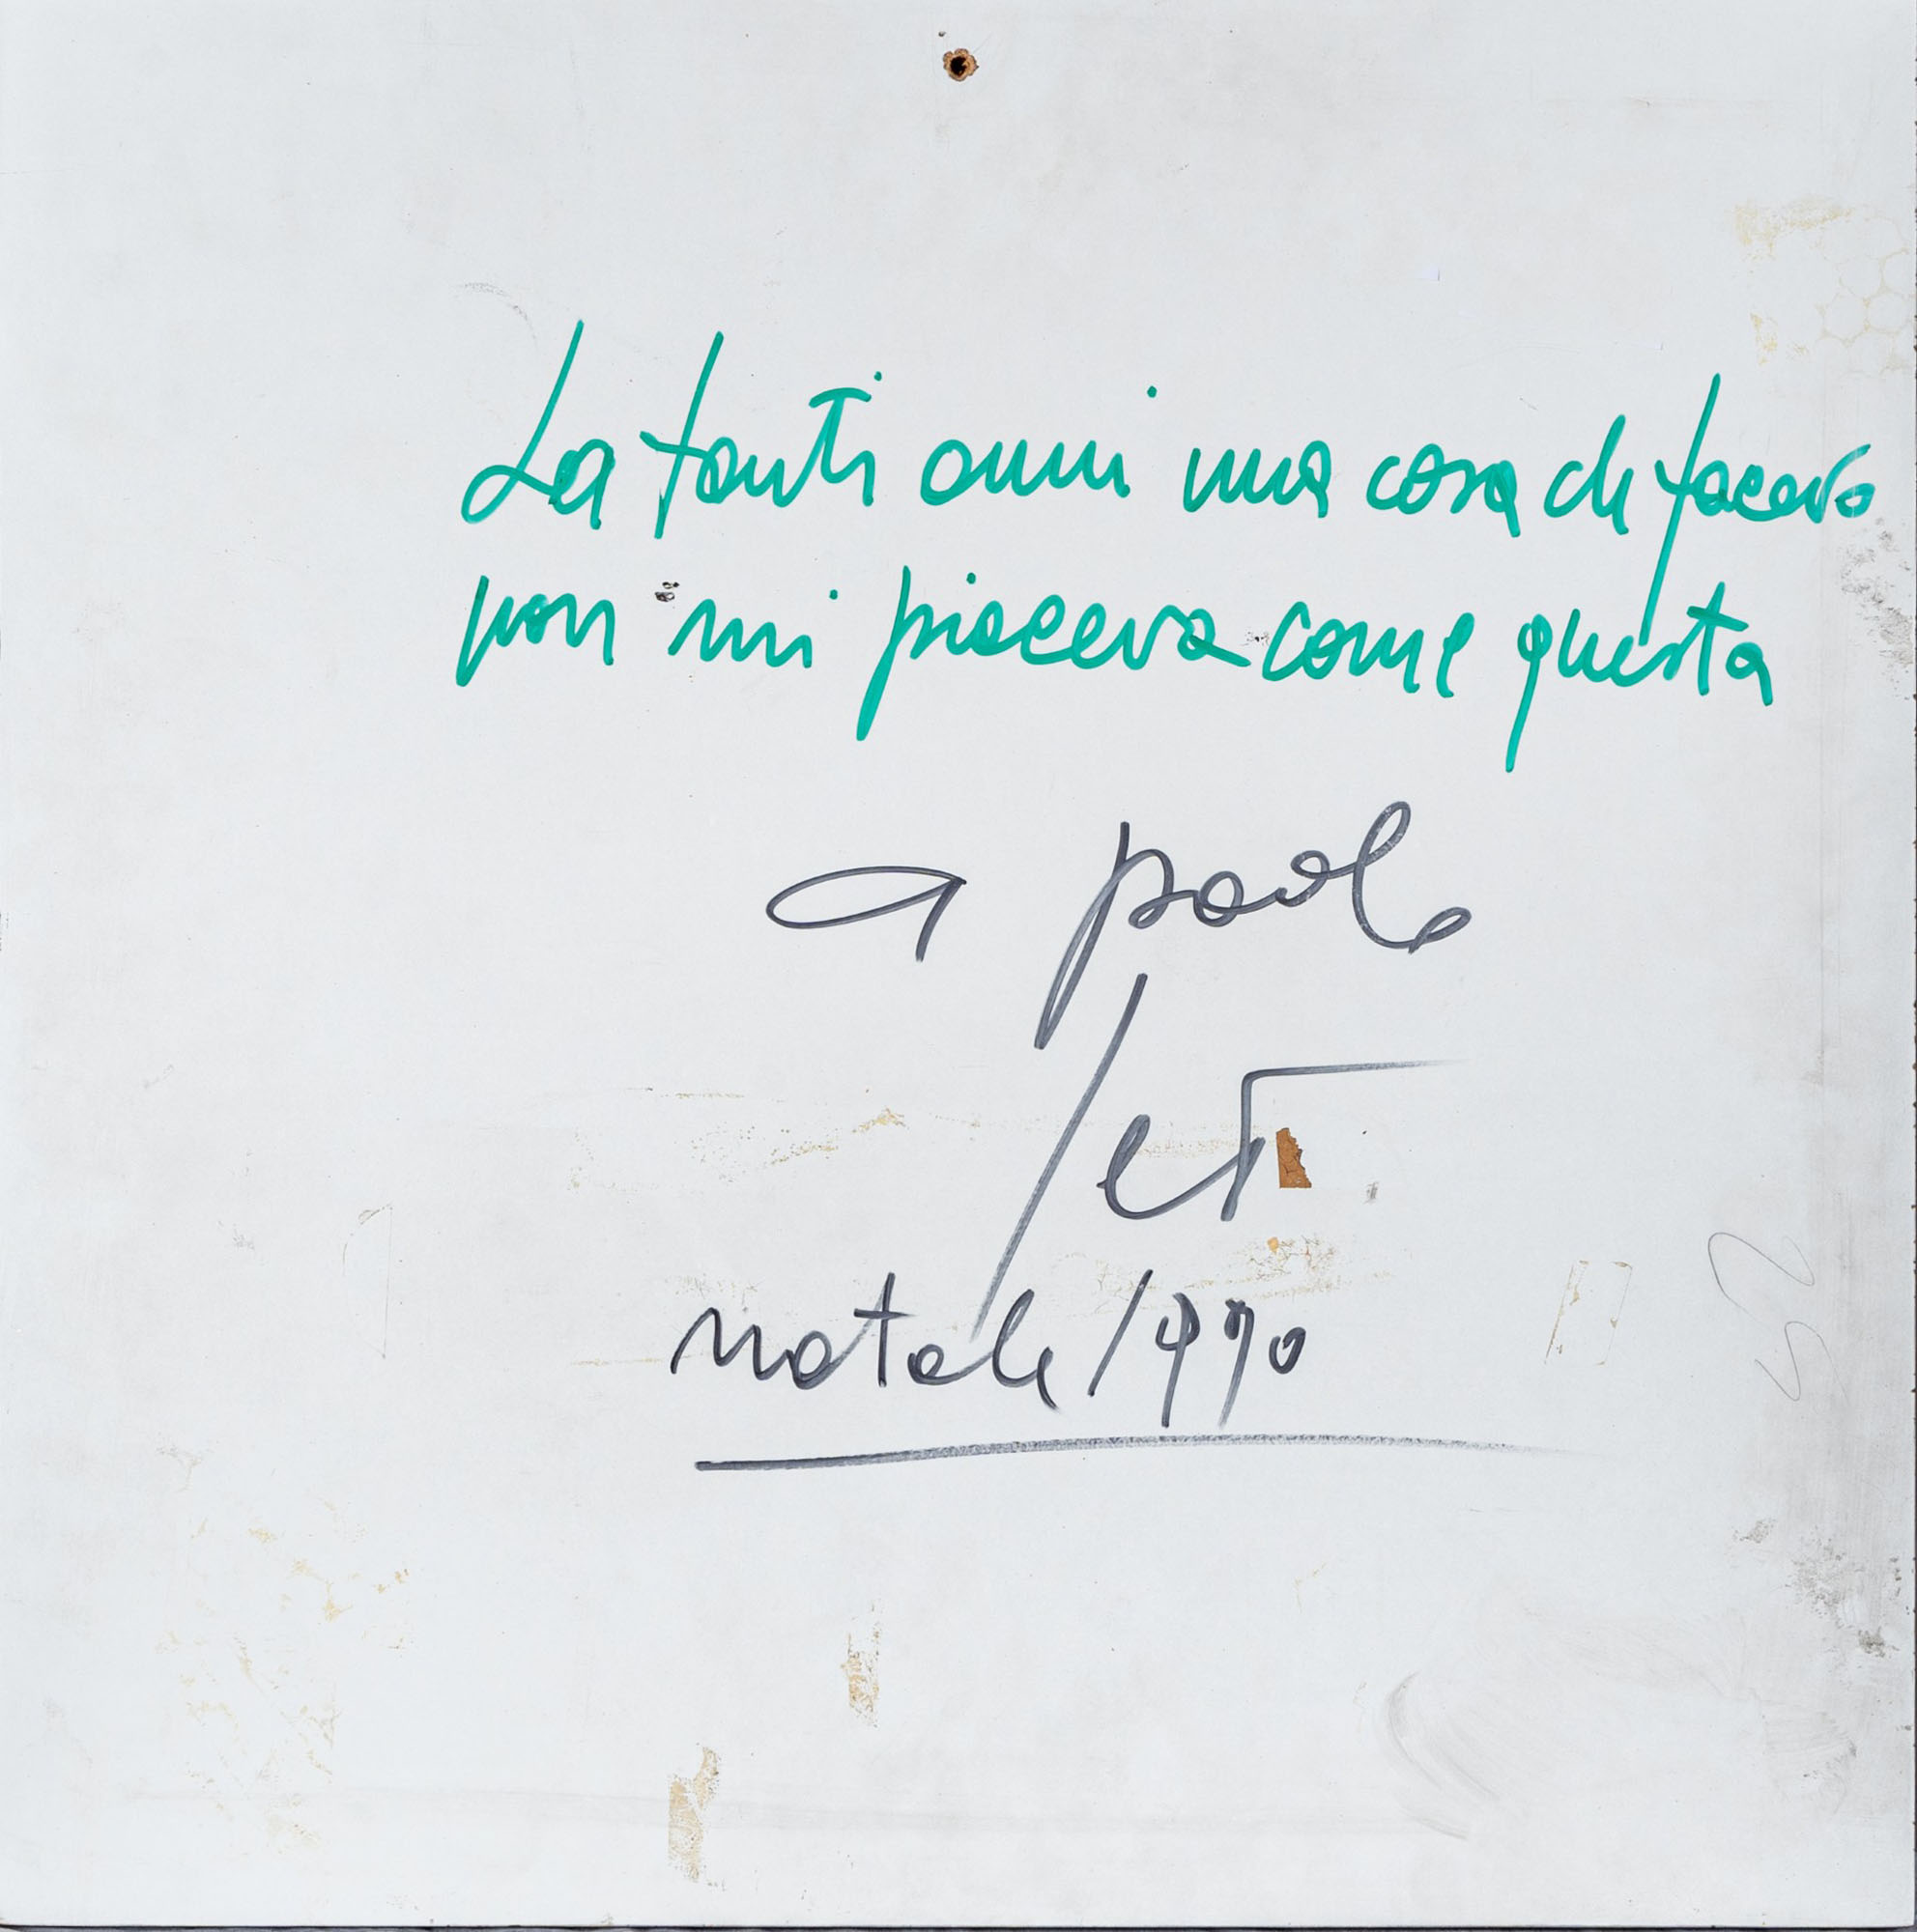 Da tanti anni una cosa che facevo
non mi piaceva come questa
a paolo
natale 1990